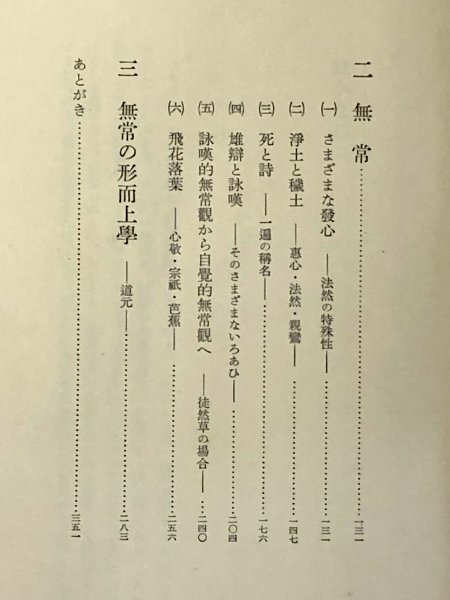 二 無常……………………一三一
㈠ さまざまな發心 ――法然の特殊性――……………………一三一
㈡ 淨土と穢土 ――惠心・法然・親鸞――……………………一四七
㈢ 死と詩 ――一遍の稱名――……………………一七六
㈣ 雄辯と詠嘆 ――そのさまざまないろあひ――……………………二〇四
㈤ 詠嘆的無常觀から自覺的無常觀へ ――徒然草の場合――……二四〇
㈥ 飛花落葉 ――心敬・宗祇・芭蕉――……………………二五六
三 無常の形而上學 ――道元――……………………二八三
あとがき……………………三五一